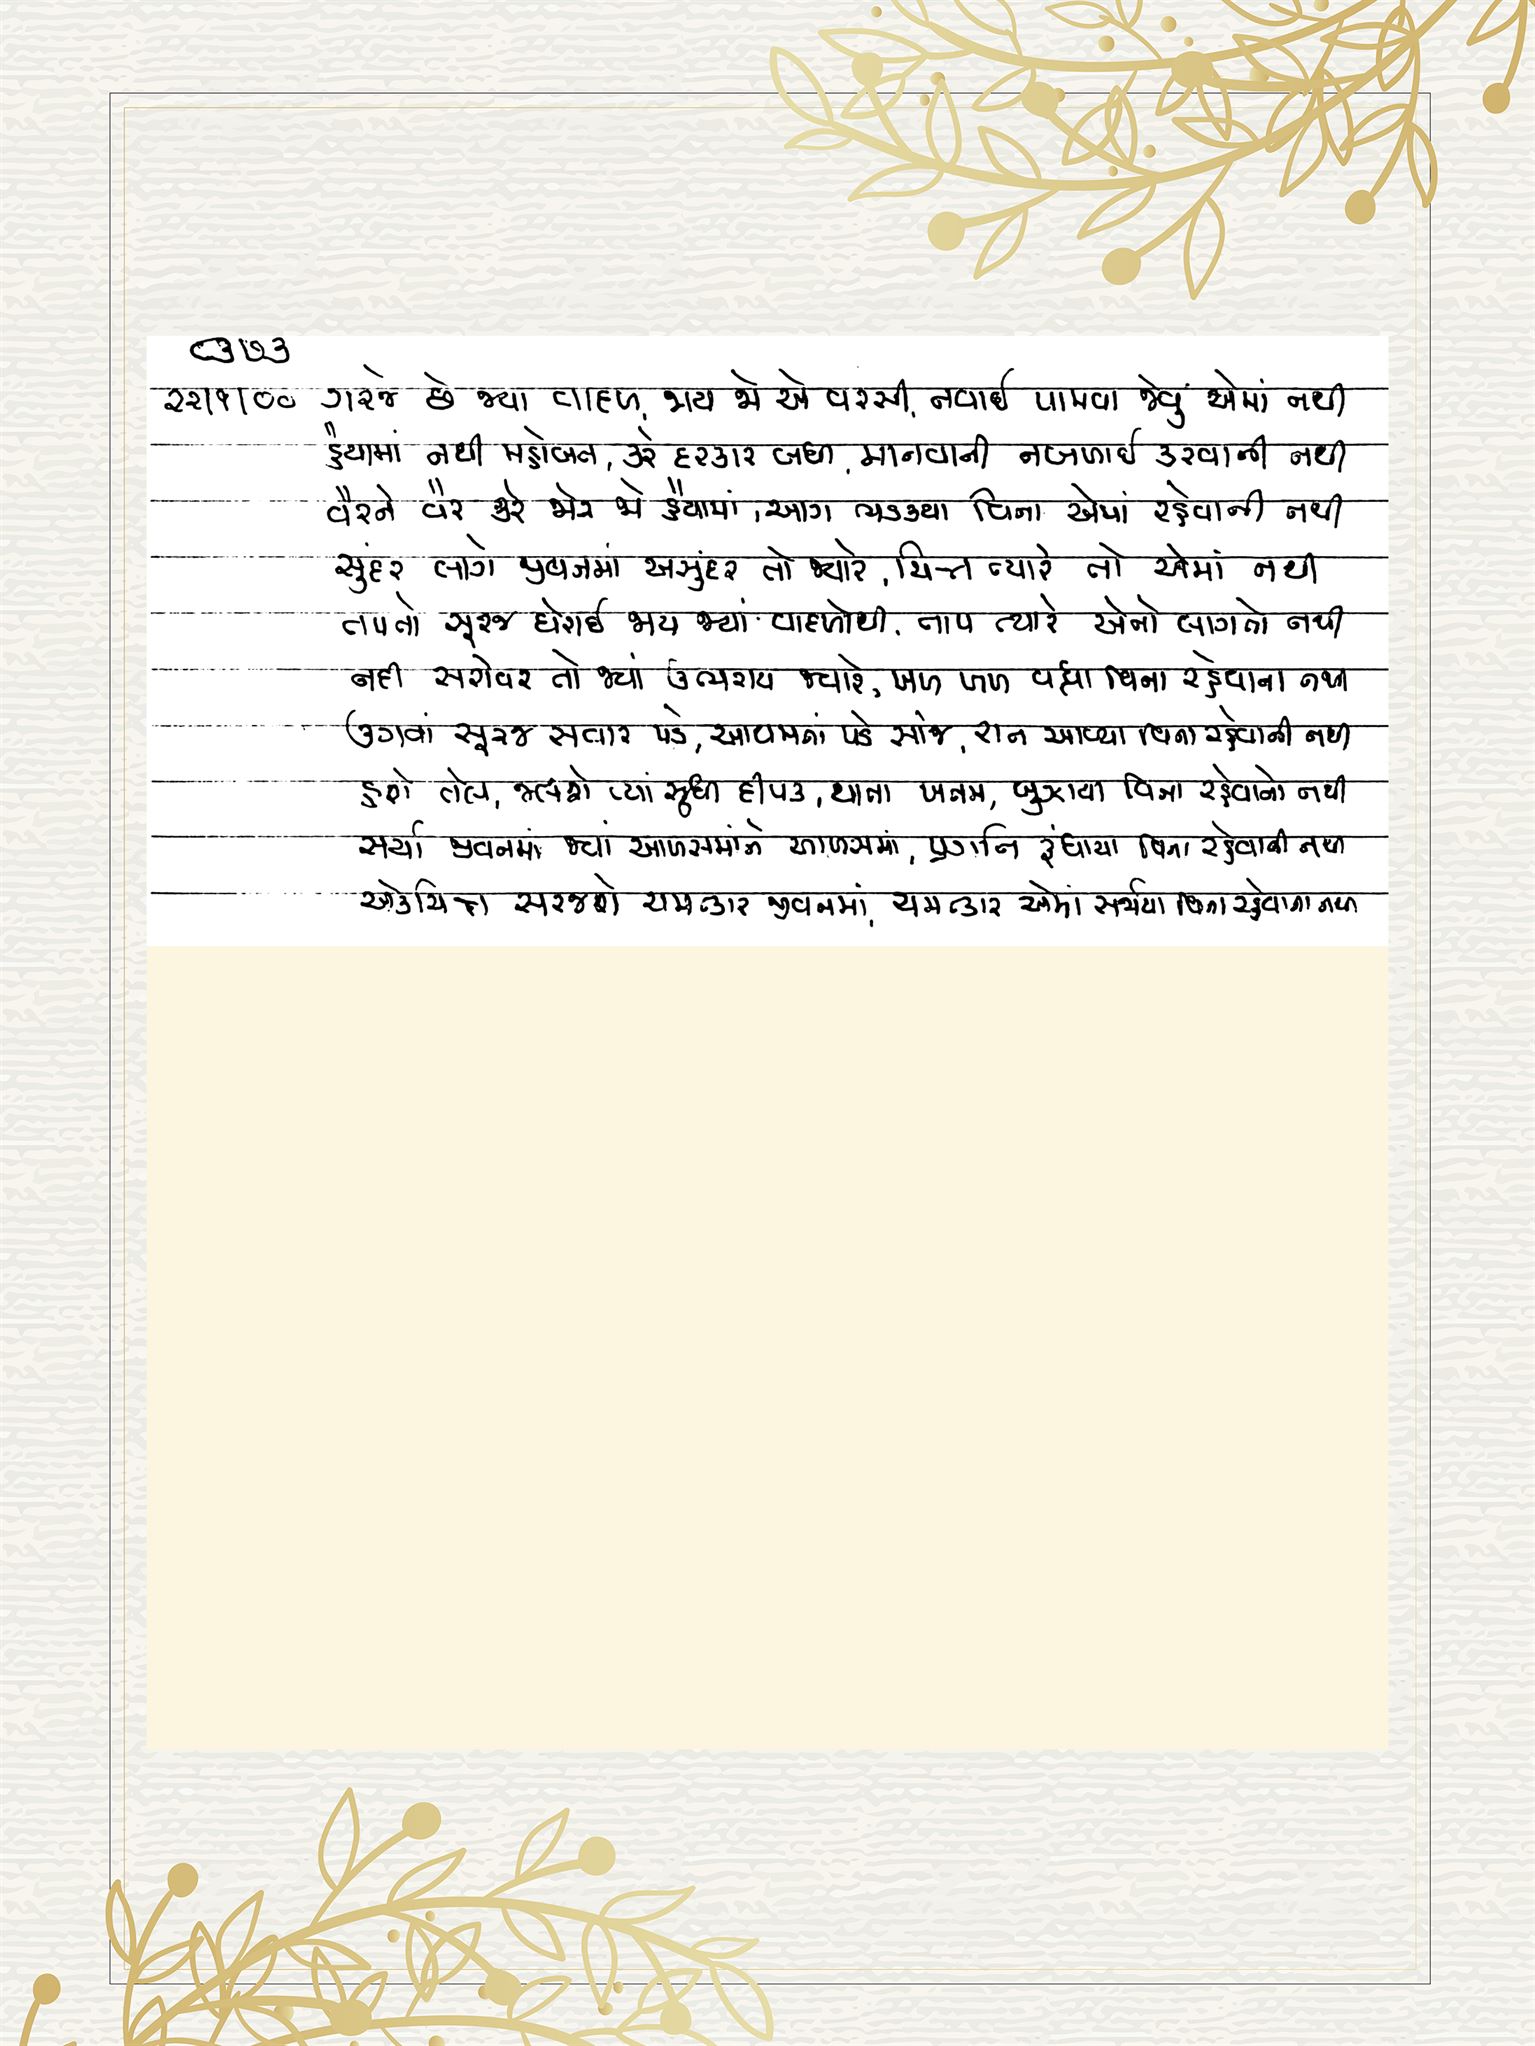 ૮૩૭૩
૨૨/૧/૦૦ ગરજે છે જ્યાં વાદળ, જાય જો એ વરસી, નવાઈ પામવા જેવું એમાં નથી
હૈયામાં નથી મહોબત, કરે દરકાર બધી, માનવાની નબળાઈ કરવાની નથી
વૈરને વૈર કરે ભેગા જો હૈયામાં, આગ ભડક્યા વિના એમાં રહેવાની નથી
સુંદર લાગે જીવનમાં અસુંદર તો જ્યારે, ચિત્ત ત્યારે તો એમાં નથી
તપતો સૂરજ ઘેરાઈ જાય જ્યાં વાદળોથી, તાપ ત્યારે એનો લાગતો નથી
નદી સરોવર તો જ્યાં ઉભરાય જ્યારે, ખળ ખળ વહ્યા વિના રહેવાના નથી
ઉગતાં સૂરજ સવાર પડે, આથમતાં પડે સાંજ, રાત આવ્યા વિના રહેવાની નથી
હશે તેલ, જલશે ત્યાં સુધી દીપક, થાતા ખતમ, બુઝાયા વિના રહેવાનો નથી
સર્યા જીવનમાં જ્યાં આળસમાંને આળસમાં, પ્રગતિ રૂંધાયા વિના રહેવાની નથી
એકચિત્તા સરજશે ચમત્કાર જીવનમાં, ચમત્કાર એમાં સર્જાયા વિના રહેવાના નથી